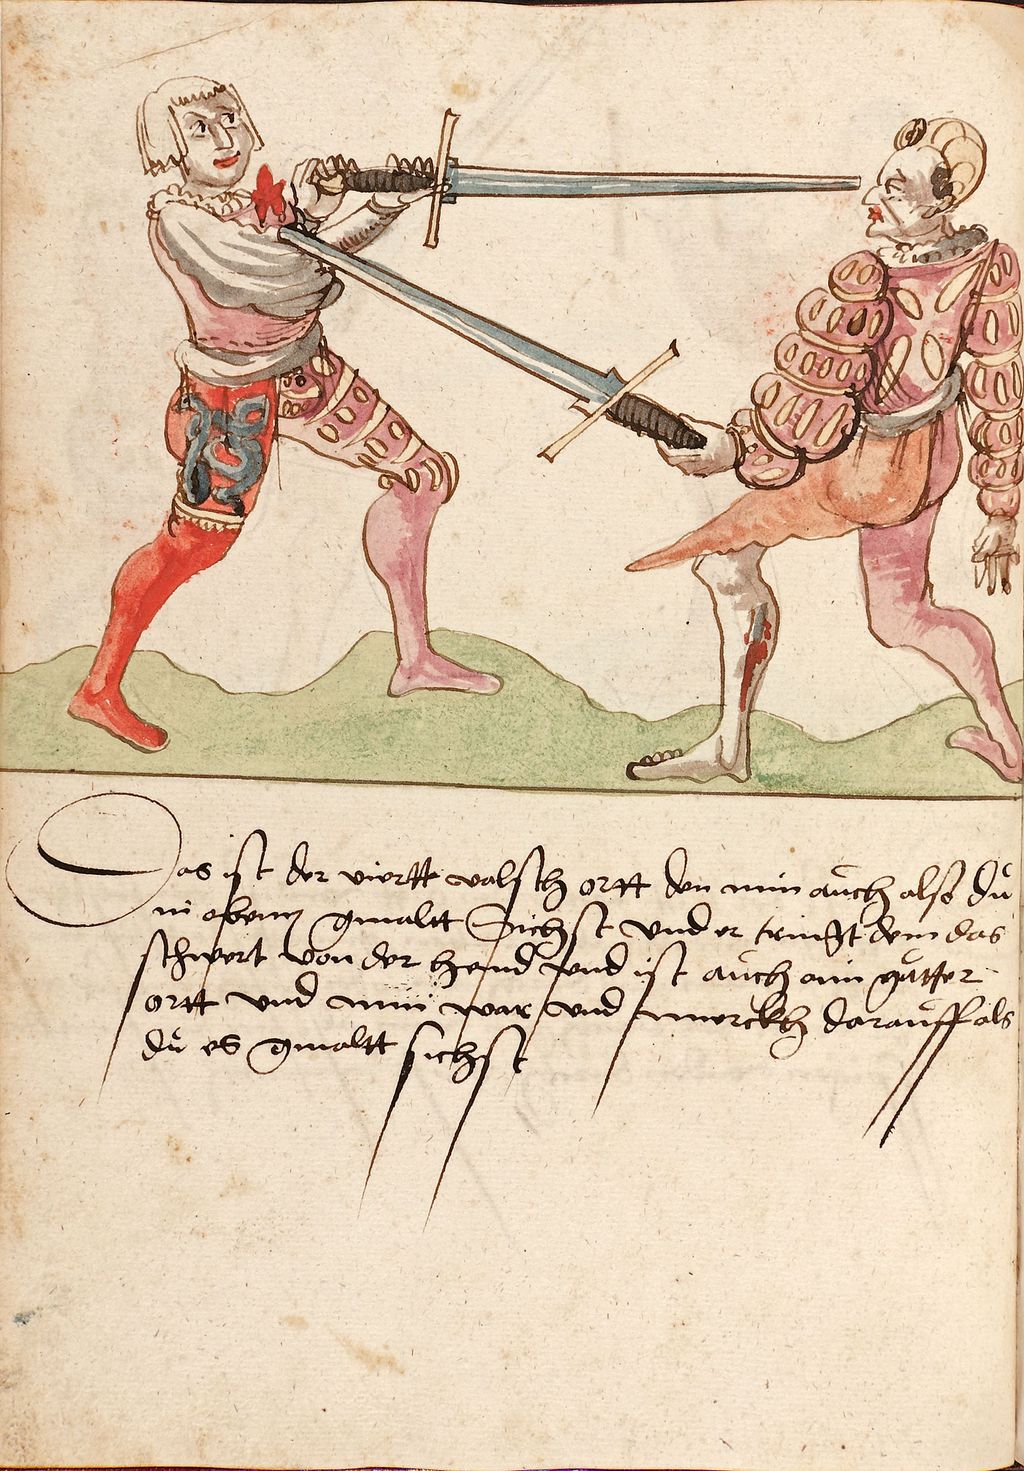 Das ist der viertt valsch ortt den nim auch also du
in oben gmaltt Sichst Und er bringt dem das
schwert von der Hend und ist auch ain gutter
ortt und nim war und merckh darauff als
du es gmaltt sichst